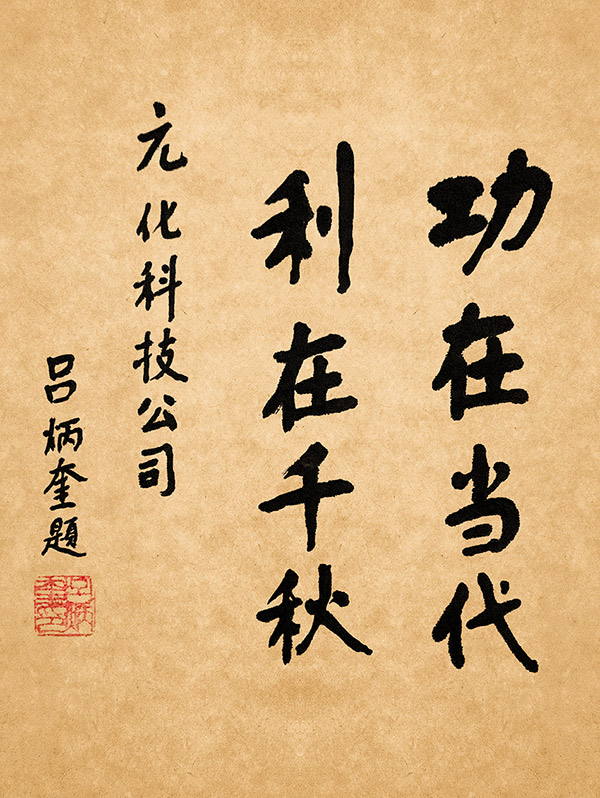 功在当代
利在千秋
元化科技公司
吕炳奎题